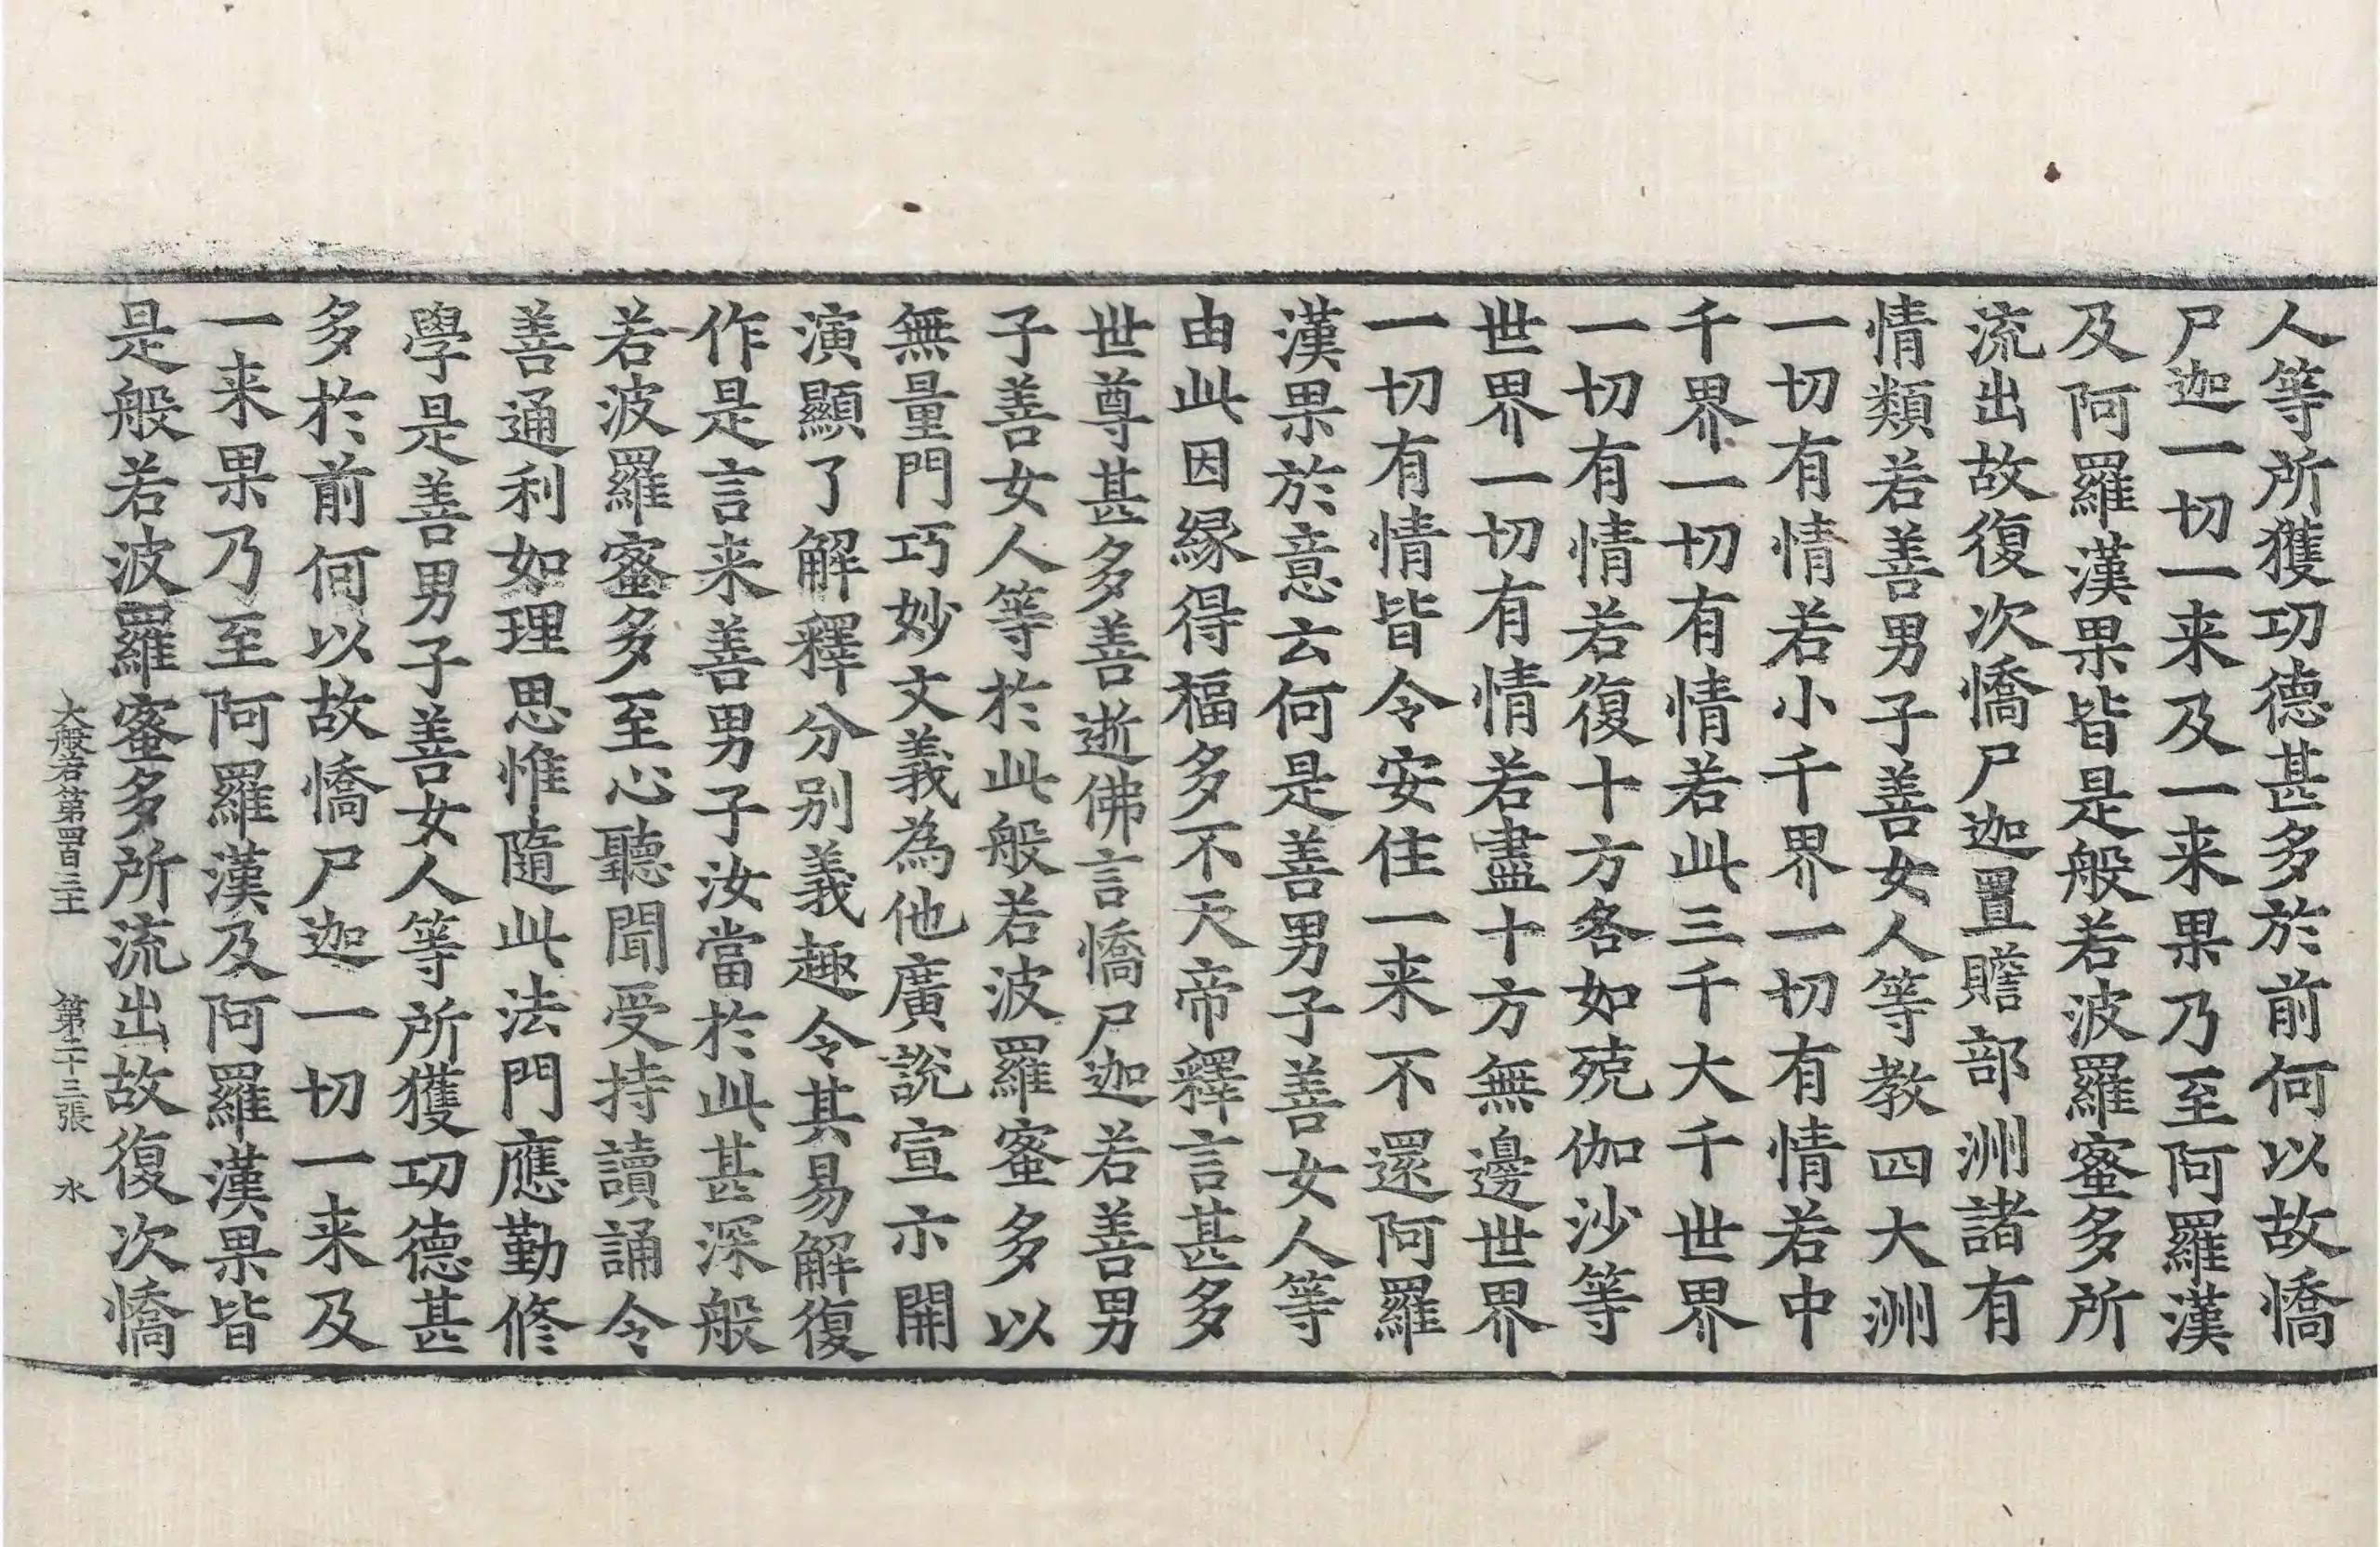 人等所獲功德甚多於前何以故憍
尸迦一切一来及一来果乃至阿羅漢
及阿羅漢果皆是般若波羅蜜多所
流出故復次憍尸迦置贍部洲諸有
情類若善男子善女人等教四大洲
一切有情若小千界一切有情若中
千界一切有情若此三千大千世界
一切有情若復十方各如殑伽沙等
世界一切有情若盡十方無邊世界
一切有情皆令安住一来不還阿羅
漢果於意云何是善男子善女人等
由此因緣得福多不天帝釋言甚多
世尊甚多善逝佛言憍尸迦若善男
子善女人等於此般若波羅蜜多以
無量門巧妙文義為他廣說宣示開
演顯了解釋分别義趣令其易解復
作是言来善男子汝當於此甚深般
若波羅蜜多至心聽聞受持讀誦令
善通利如理思惟隨此法門應勤修
學是善男子善女人等所獲功德甚
多於前何以故憍尸迦一切一来及
一来果乃至阿羅漢及阿羅漢果皆
是般若波羅蜜多所流出故復次憍
大般若第四百三十 第二十三張 水